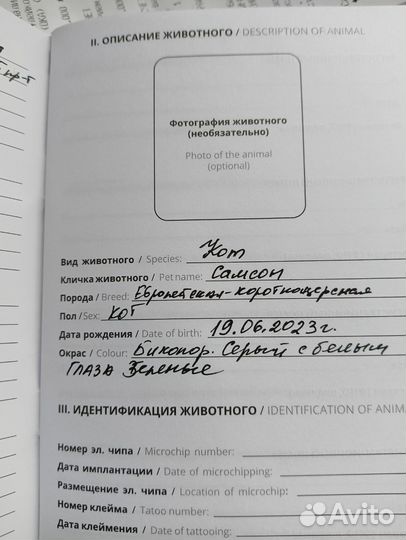 II. ОПИСАНИЕ ЖИВОТНОГО / DESCRIPTION OF ANIMAL
Фотография животного
(необязательно)
Photo of the animal
(optional)
Вид животного / Species: Кот
Кличка животного / Pet name: Самсон
Порода / Breed: Европейская-короткошерстная
Пол / Sex: КОТ
Дата рождения / Date of birth: 19.06.2023г.
Окрас / Colour: Биколор. Серый с белым
ГЛАЗА Зеленые
III. ИДЕНТИФИКАЦИЯ ЖИВОТНОГО / IDENTIFICATION OF ANIMA
Номер эл. чипа / Microchip number:
Дата имплантации / Date of microchipping:
Размещение эл. чипа / Location of microchip:
Номер клейма / Tatoo number:
Дата клеймения / Date of tattooing:
Avito